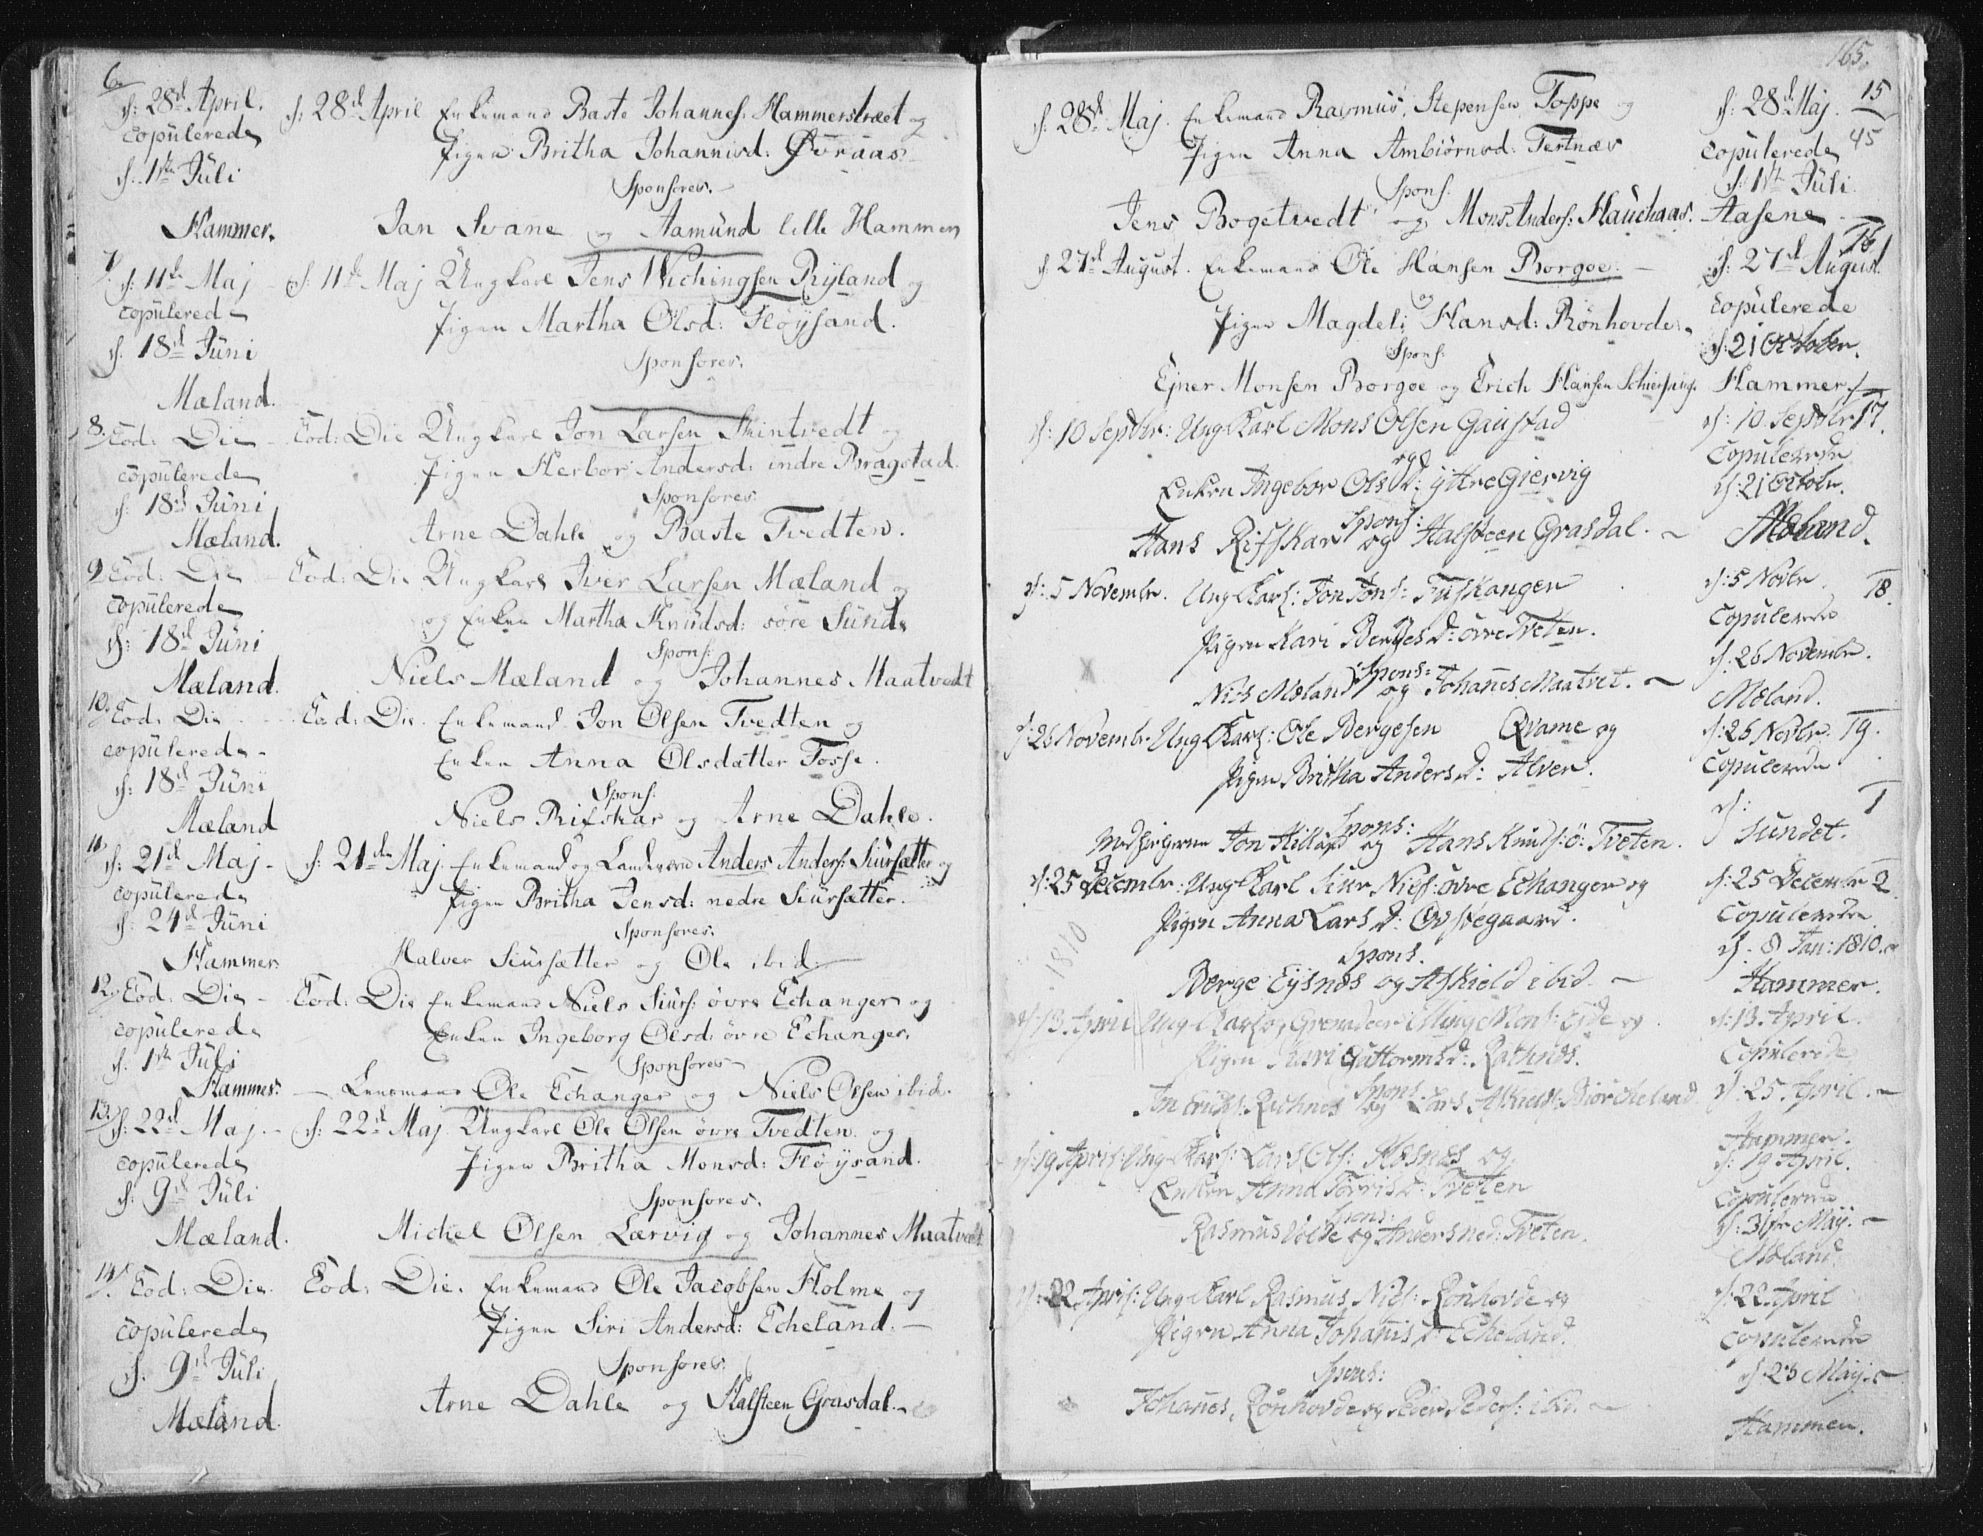 6.
d: 28d April. d: 28d April Enkemand Baste Johannes: Hammerstræet og
copulerede Pigen Britha Johannisd: Øvraas.
d. 1ste Juli Sponsores.
Hammer. Jan Svane og Aamund lille Hammer
7. d: 11te Maj d: 11te Maj Ungkarl Jens Wichingsen Ryland og
copulered Pigen Martha Olsd: Fløysand.
d. 18d Juni Sponsores.
Mæland.
8. Eod: Die Eod: Die Ungkarl Jon Larsen Skintvedt og
copulerede Pigen Herbor Andersd: indre Bragstad.
d: 18d Juni Sponsores
Mæland. Arne Dahle og Baste Tvedten.
9. Eod: Die Eod: Die Ungkarl Iver Larsen Mæland og
copulerede og Enken Martha Knudsd: søre Sund.
d: 18d Juni Spons:
Mæland. Niels Mæland og Johannes Maatvedt
10. Eod: Die Eod: Die. Enkemand Jon Olsen Tvedten og
copulerede Enken Anna Olsdatter Fosse.
d: 18d Juni Spons.
Mæland Niels Rifskar og Arne Dahle.
11. d: 21d Maj d: 21de Maj Enkemand og Landværn Anders Anders: Siursætter og
copulerede Pigen Britha Jensd: nedre Siursætter.
d: 24d Juni Sponsores.
Hammer Halver Siursætter og Ole ibid:
12. Eod. Die Eod: Die Enkemand Niels Siurs: øvre Echanger og
copulerede Enken Ingeborg Olsd: øvre Echanger.
d. 1ste Juli Sponsores
Hammer. Lensmand Ole Echanger og Niels Olsen ibid.
13. d: 22d Maj d: 22d Maj Ungkarl Ole Olsen øvre Tvedten og
copulerede Pigen Britha Monsd: Fløysand.
d: 9d Juli Sponsores.
Mæland. Michel Olsen Lærvig og Johannes Maatvedt
14. Eod: Die Eod: Die. Enkemand Ole Jacobsen Holme og
copulerede Pigen Siri Andersd: Echeland.
d. 9d Juli Sponsores.
Mæland. Arne Dahle og Halsteen Grasdal.
165.
d: 28d Maj. Enkemand Rasmus Stepensen Toppe og d: 28d Maj. 15
Pigen Anna Ambiørnsd: Tertnæs copulerede 45
Spons. d: 1ste Juli
Jens Bogetvedt og Mons Anders: Hauchaas. Aasene
d: 27d August. Enkemand Ole Hansen Borgoe d: 27d August 16
og copulerede
Pigen Magdeli Hansd: Rønhovde d: 21 October.
Spons.
Ejner Monsen Borgoe og Erich Hansen Hammer
d: 10 Septbr: Ung Karl Mons Olsen Gaustad d: 10 Septbr 17.
og copulerede
Enken Ingebor Olsd: yttre Giervig d: 21 Octobr.
Spons:
Hans Rifskar og Halsteen Grasdal. Mæland.
d: 5 Novembr. Ung Karl: Jon Jons: Fuskangen d: 5 Novbr. 18.
Pigen Kari Bergesd: øvre Tveten. copulerede
Spons: d. 26 Novembr.
Nils Mæland og Johanes Maatvet. Mæland.
d: 26 Novembr Ung Karl: Ole Bergesen Qvame og d: 26 Novbr. 19.
Pigen Britha Andersd: Alver. copulerede
Spons: d: 1
Jon Hilland og Hans Knuds: ö: Tveten. Sundet.
d: 25 Decembr: Ung Karl Siur Niels: øvre Echanger og d: 25 Decembr 2
Pigen Anna Larsd: Ovstegaard. copulerede
1810 Spons. d. 8 Jan: 1810.
Berge Eysnes og Askield ibid. Hammer.
d: 13 April Ung Karl og Grenadeer Elling Mons: Eide og d: 13. April.
Pigen Guttormsd: Rachnes. copulerede
Spons: d: 25. April.
Jon Erichs: Rachnes og Lars Askields: Biørcheland Hammer.
d: 19 April: Ung Karl: Lars Ols: og d: 19 April.
Enken Anna Torrisd: Tveten copulerede
Spons: d: 31te Maij.
Rasmus Volde og Anders ned: Tveten. Mæland.
d: 22 April: Ung Karl Rasmus Niels: Rønhovde og d: 22 April
Pigen Anna Johanisd: Echeland. copulerede
Spons: d: 23 Maij.
Johanes Rønhovde og Peder Peders: Hammer.